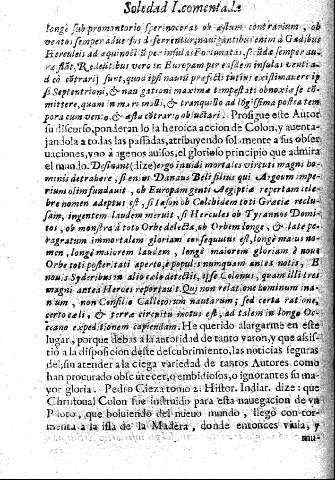 Soledad I. comentada
longè sub promontorio sperinocerat ob æstum contrarium, ob
ventos semper aduersos deferrentur nauigantibus enim à Gadibus
Herculeis ad æquinoctiũ per insulas Fortunatas, secũda semper au-
ræ flãt, Redeütibus vero in Europam per easdem insulas venti ad-
eò cõtrarij sunt, quod ipsi nautæ præfecti tutius existimauere ip
si Septentrioni, & nauigationi maximæ tempestati obnoxiæ se cõ-
mittere, quam in mari molli, & tranquillo ad lõgissima postea tem
pora cum vento, & æstu cõtrario obluctari. Prosigue este Autor
su discurso, ponderando la heroica accion de Colon, y auenta-
jandola a todas las passadas, atribuyendo solamente a sus obser
uaciones, y no à agenos auisos, el glorioso principio que admira
el mundo. Desinant (dize) ergo inuidi mortales virtuti magni ho-
minis detrahere, si enim Danaus Beli filius qui Argon imper-
ium olim fundauit, ob Europam genti Aegiptiæ repertam cele-
bre nomen adeptus est, si Iason ob Colchidem toti Græciæ reclu-
sam, ingentem laudem meruit, si Hercules ob Tyrannos Domi-
tos, ob monstra à toto Orbe delecta, ob Orbem longe, & late pe-
ragratum immortalem gloriam consequutus est, longè maius no-
men, longè maiorem laudem, longè maiorem gloriam è nouo
Orbe toti posteritati aperto, & populis nunquam antè notis,
nouis Syderibus in alio cœlo detectis, ipse Colonus, quam illi tres
magni antea Heroes reportauit. Qui non relatione hominum ina-
nium, non Consilio Callecorum nautarum; sed certa ratione,
certo cœli, & terræ circuitu motus est, ad talem in longo Oc-
ceano expeditionem capiendam. He querido alargarme en este
lugar, porque debas a la autoridad de tanto varon, y que assis-
tiò a la disposicion deste descubrimiento, las noticias seguras
del, sin atender a la ciega variedad de tantos Autores como
han procurado obscurecer, o embidiosos, o ignorantes su ma-
yor gloria. Pedro Cieza tom. 2. Histor. Indiar. dize: que
Christoual Colon fue instruido para esta nauegacion de vn
Piloto, que boluiendo del nueuo mundo, llegò con tor-
menta a la isla de la Madera, donde entonces viuia, y
mu-